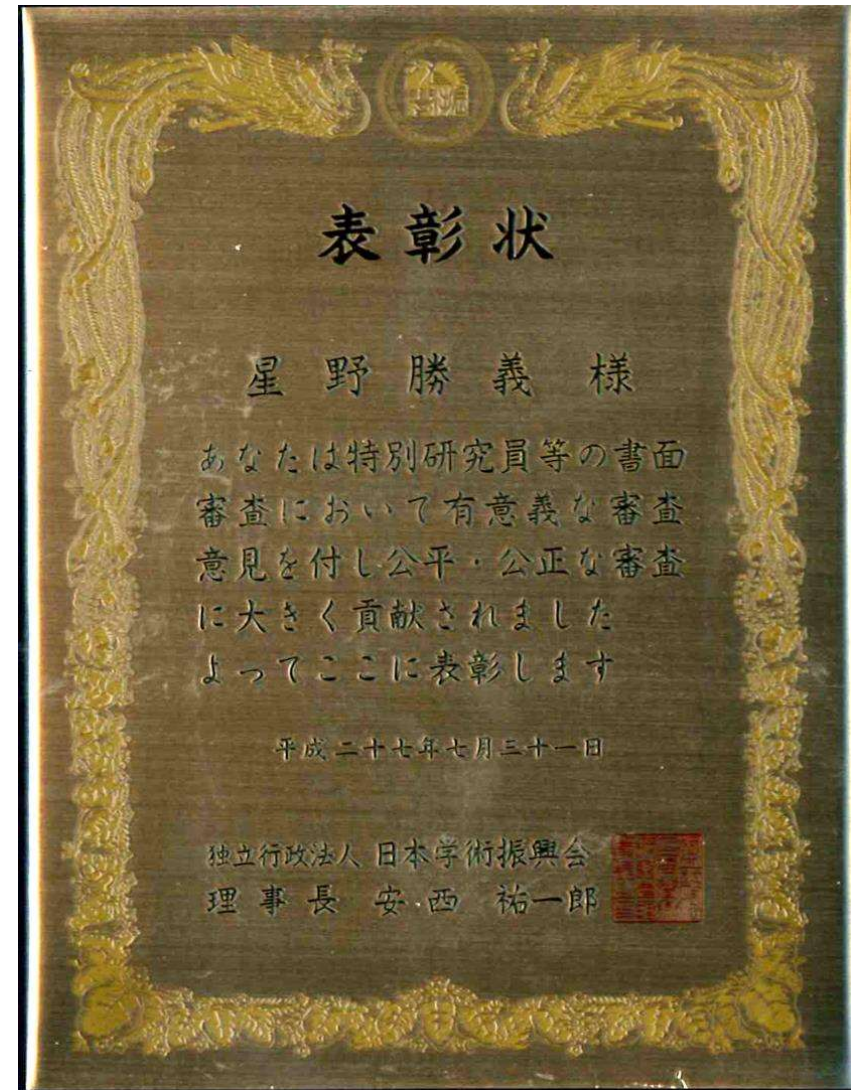 表彰状
星野勝義 様
あなたは特別研究員等の書面
審査において有意義な審査
意見を付し公平・公正な審査
に大きく貢献されました
よってここに表彰します
平成二十七年七月三十一日
独立行政法人 日本学術振興会
理事長 安西 祐一郎